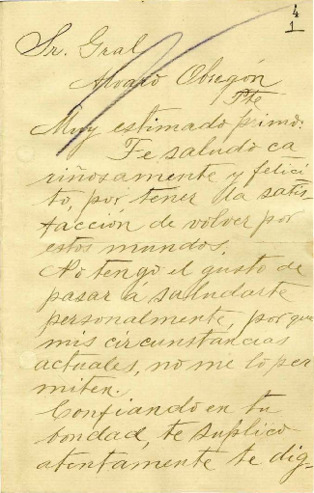 4
1
Sr. Gral
Alvaro Obregón
Pte
Muy estimado primo:
Te saludo ca
riñosamente y felici
to, por tener la satis-
facción de volver por
estos mundos.
No tengo el gusto de
pasar á saludarte
personalmente, por que
mis circunstancias
actuales, no me lo per
miten.
Confiando en tu
bondad, te suplico
atentamente te dig-